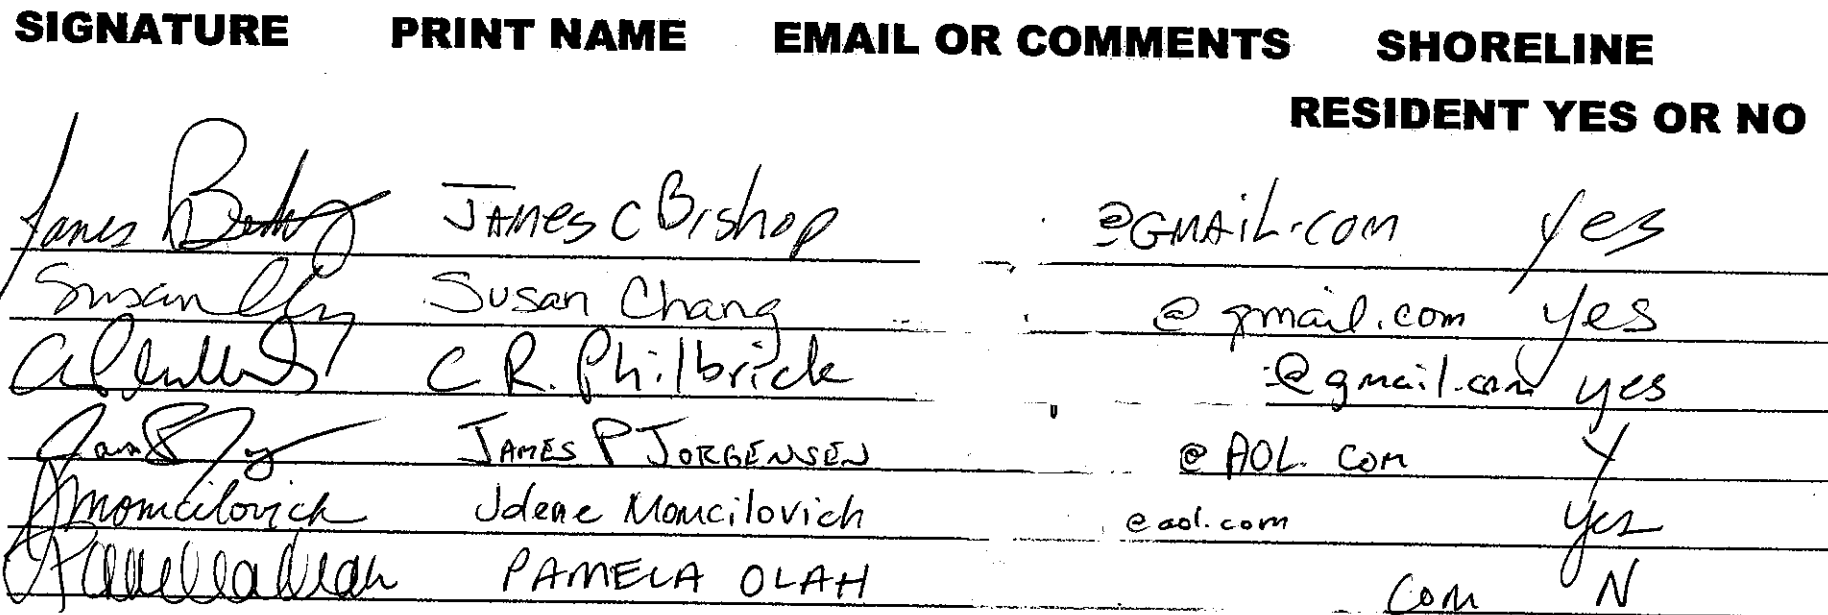 SIGNATURE PRINT NAME EMAIL OR COMMENTS SHORELINE
RESIDENT YES OR NO
James JAMES C BISHOP @GMAIL.COM Yes
Susan Susan Chang @gmail.com Yes
C R. Philbrick @gmail.com yes
JAMES P JORGENSEN @AOL.COM Y
Momcilovich Momcilovich @aol.com yes
PAMELA OLAH com N